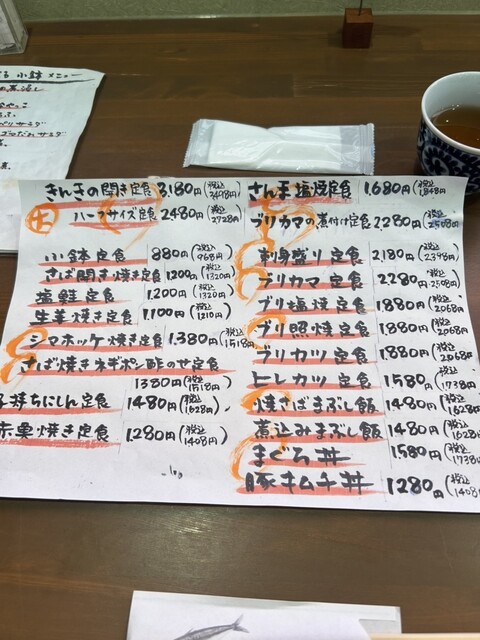 小鉢メニュー
きんきの開き定食 3,180円(税込3498円)
ハーフサイズ定食 2480円(税込2728円)
小鉢定食 880円(税込968円)
さば開き焼き定食 1200円(税込1320円)
塩鮭定食 1,200円(税込1320円)
生姜焼き定食 1,100円(税込1210円)
シマホッケ焼き定食 1,380円(税込1518円)
さば焼きネギポン酢のせ定食
1380円(税込1518円)
子持ちにしん定食 1480円(税込1628円)
赤魚焼き定食 1,280円(税込1408円)
さんま塩焼定食 1,680円(税込1,848円)
ブリカマの煮付け定食 2,280円(税込2508円)
刺身盛り定食 2,180円(税込2,398円)
ブリカマ定食 2,280円(税込2508円)
ブリ塩焼定食 1,880円(税込2068円)
ブリ照焼定食 1,880円(税込2068円)
ブリカツ定食 1,880円(税込2068円)
ヒレカツ定食 1,580円(税込1738円)
焼さばまぶし飯 1,480円(税込1628円)
煮込みまぶし飯 1480円(税込1628円)
まぐろ丼 1580円(税込1738円)
豚キムチ丼 1280円(税込1408円)